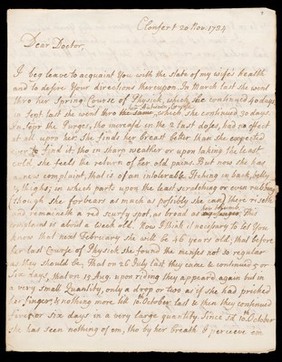 Clonfert 20 Nov. 1734
Dear Doctor,
I beg leave to acquaint You with the state of my wife's health
and to desire Your directions thereupon. In March last she went
thro' her Spring Course of Physick, which she continued 40 days.
in Sept last she went thro the same, which she continued 30 days.
In Septr the Purges, tho' the 2 last doses, had no effect
at all upon her. She finds her breast better than she expected
ever to find it: tho' in sharp weather or upon taking the least
cold she feels the return of her old pains. But now she has
a new complaint, that is of an intolerable Itching in back, belly
& thighs; in which parts upon the least scratching or even rubbing
(though she forbears as much as possibly she can) there riseth
and remaineth a red scurfy spot, as broad as
complaint is about a week old. Now I think it necessary to let You
know that next February she will be 46 years old; that before
her last Course of Physick she found her menses not so regular
as they should be. That on 25 July last they came & continued
six days, that on 19 Aug. upon riding they appeared again but in
a very small Quantity, only a drop or two as if she had pricked
her finger; & nothing more till October last & then they continued
four or six days in a very large quantity. Since October
she has seen nothing of em, tho' by her breath I perceive em